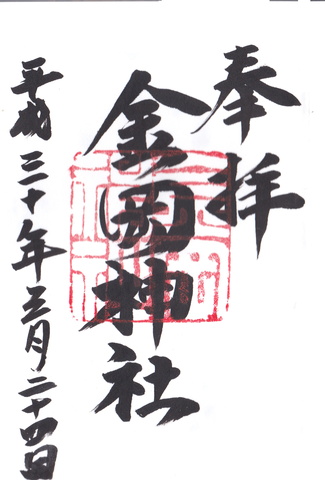 奉拝
金岡神社
平成三十年三月二十四日